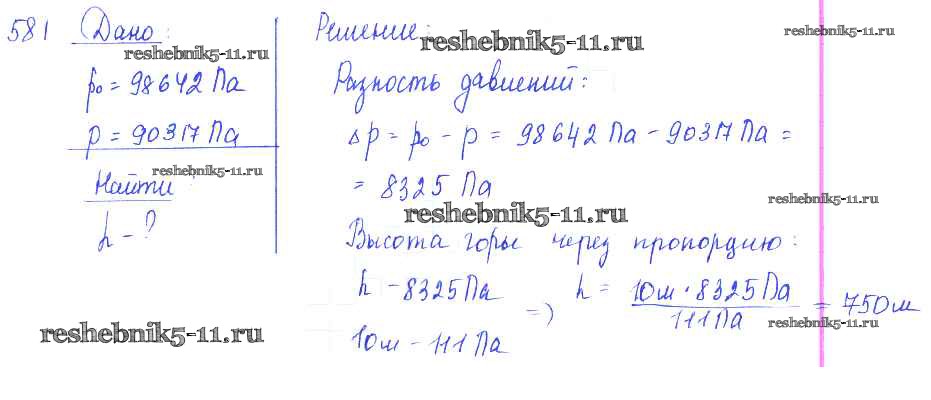 581 Дано: Решение:
reshebnik5-11.ru reshebnik5-11.ru reshebnik5-11.ru
p₀ = 98642 Па Разность давлений:
p = 90317 Па Δp = p₀ - p = 98642 Па - 90317 Па =
reshebnik5-11.ru
Найти = 8325 Па
reshebnik5-11.ru reshebnik5-11.ru
h - ? Высота горы через пропорцию:
h - 8325 Па h = 10м · 8325 Па / 111 Па = 750м
=>
reshebnik5-11.ru reshebnik5-11.ru
10м - 111 Па